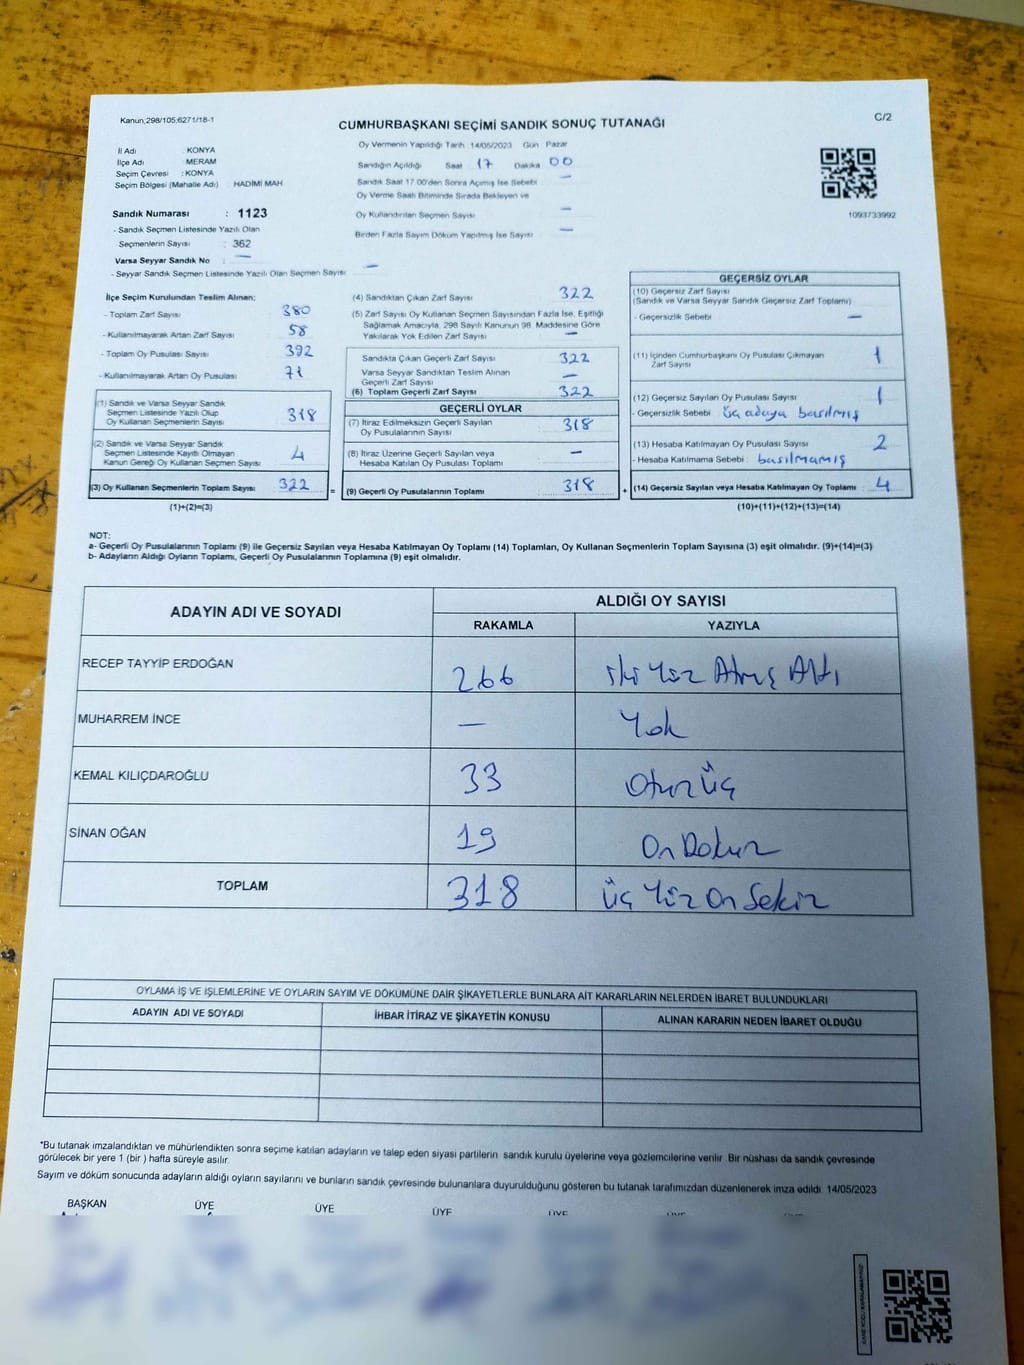 Kanun;298/105;6271/18-1
C/2
CUMHURBAŞKANI SEÇİMİ SANDIK SONUÇ TUTANAĞI
İl Adı KONYA
İlçe Adı MERAM
Seçim Çevresi : KONYA
Seçim Bölgesi (Mahalle Adı) HADİMİ MAH
Sandık Numarası : 1123
- Sandık Seçmen Listesinde Yazılı Olan
Seçmenlerin Sayısı : 362
Varsa Seyyar Sandık No : —
- Seyyar Sandık Seçmen Listesinde Yazılı Olan Seçmen Sayısı —
Oy Vermenin Yapıldığı Tarih 14/05/2023 Gün Pazar
Sandığın Açıldığı Saat 17 Dakika 00
Sandık Saat 17:00'den Sonra Açılmış İse Sebebi —
Oy Verme Saati Bitiminde Sırada Bekleyen ve
Oy Kullandırılan Seçmen Sayısı —
Birden Fazla Sayım Döküm Yapılmış İse Sayısı —
1093733992
İlçe Seçim Kurulundan Teslim Alınan;
- Toplam Zarf Sayısı 380
- Kullanılmayarak Artan Zarf Sayısı 58
- Toplam Oy Pusulası Sayısı 392
- Kullanılmayarak Artan Oy Pusulası 71
(1) Sandık ve Varsa Seyyar Sandık
Seçmen Listesinde Yazılı Olup
Oy Kullanan Seçmenlerin Sayısı 318
(2) Sandık ve Varsa Seyyar Sandık
Seçmen Listesinde Kayıtlı Olmayan
Kanun Gereği Oy Kullanan Seçmen Sayısı 4
(3) Oy Kullanan Seçmenlerin Toplam Sayısı 322 =
(1)+(2)=(3)
(4) Sandıktan Çıkan Zarf Sayısı 322
(5) Zarf Sayısı Oy Kullanan Seçmen Sayısından Fazla İse, Eşitliği
Sağlamak Amacıyla, 298 Sayılı Kanunun 98. Maddesine Göre
Yakılarak Yok Edilen Zarf Sayısı —
Sandıkta Çıkan Geçerli Zarf Sayısı 322
Varsa Seyyar Sandıktan Teslim Alınan
Geçerli Zarf Sayısı —
(6) Toplam Geçerli Zarf Sayısı 322
GEÇERLİ OYLAR
(7) İtiraz Edilmeksizin Geçerli Sayılan
Oy Pusulalarının Sayısı 318
(8) İtiraz Üzerine Geçerli Sayılan veya
Hesaba Katılan Oy Pusulası Toplamı —
(9) Geçerli Oy Pusulalarının Toplamı 318 +
GEÇERSİZ OYLAR
(10) Geçersiz Zarf Sayısı
(Sandık ve Varsa Seyyar Sandık Geçersiz Zarf Toplamı)
- Geçersizlik Sebebi —
(11) İçinden Cumhurbaşkanı Oy Pusulası Çıkmayan
Zarf Sayısı 1
(12) Geçersiz Sayılan Oy Pusulası Sayısı 1
- Geçersizlik Sebebi üç adaya basılmış
(13) Hesaba Katılmayan Oy Pusulası Sayısı 2
- Hesaba Katılmama Sebebi : basılmamış
(14) Geçersiz Sayılan veya Hesaba Katılmayan Oy Toplamı : 4
(10)+(11)+(12)+(13)=(14)
NOT:
a- Geçerli Oy Pusulalarının Toplamı (9) ile Geçersiz Sayılan veya Hesaba Katılmayan Oy Toplamı (14) Toplamları, Oy Kullanan Seçmenlerin Toplam Sayısına (3) eşit olmalıdır. (9)+(14)=(3)
b- Adayların Aldığı Oyların Toplamı, Geçerli Oy Pusulalarının Toplamına (9) eşit olmalıdır.
ADAYIN ADI VE SOYADI ALDIĞI OY SAYISI
RAKAMLA YAZIYLA
RECEP TAYYİP ERDOĞAN 266 iki Yüz Atmış Altı
MUHARREM İNCE — Yok
KEMAL KILIÇDAROĞLU 33 Otuz üç
SİNAN OĞAN 19 On Dokuz
TOPLAM 318 üç Yüz On Sekiz
OYLAMA İŞ VE İŞLEMLERİNE VE OYLARIN SAYIM VE DÖKÜMÜNE DAİR ŞİKAYETLERLE BUNLARA AİT KARARLARIN NELERDEN İBARET BULUNDUKLARI
ADAYIN ADI VE SOYADI İHBAR İTİRAZ VE ŞİKAYETİN KONUSU ALINAN KARARIN NEDEN İBARET OLDUĞU
*Bu tutanak imzalandıktan ve mühürlendikten sonra seçime katılan adayların ve talep eden siyasi partilerin sandık kurulu üyelerine veya gözlemcilerine verilir. Bir nüshası da sandık çevresinde
görülecek bir yere 1 (bir ) hafta süreyle asılır.
Sayım ve döküm sonucunda adayların aldığı oyların sayılarını ve bunların sandık çevresinde bulunanlara duyurulduğunu gösteren bu tutanak tarafımızdan düzenlenerek imza edildi. 14/05/2023
BAŞKAN ÜYE ÜYE ÜYE ÜYE